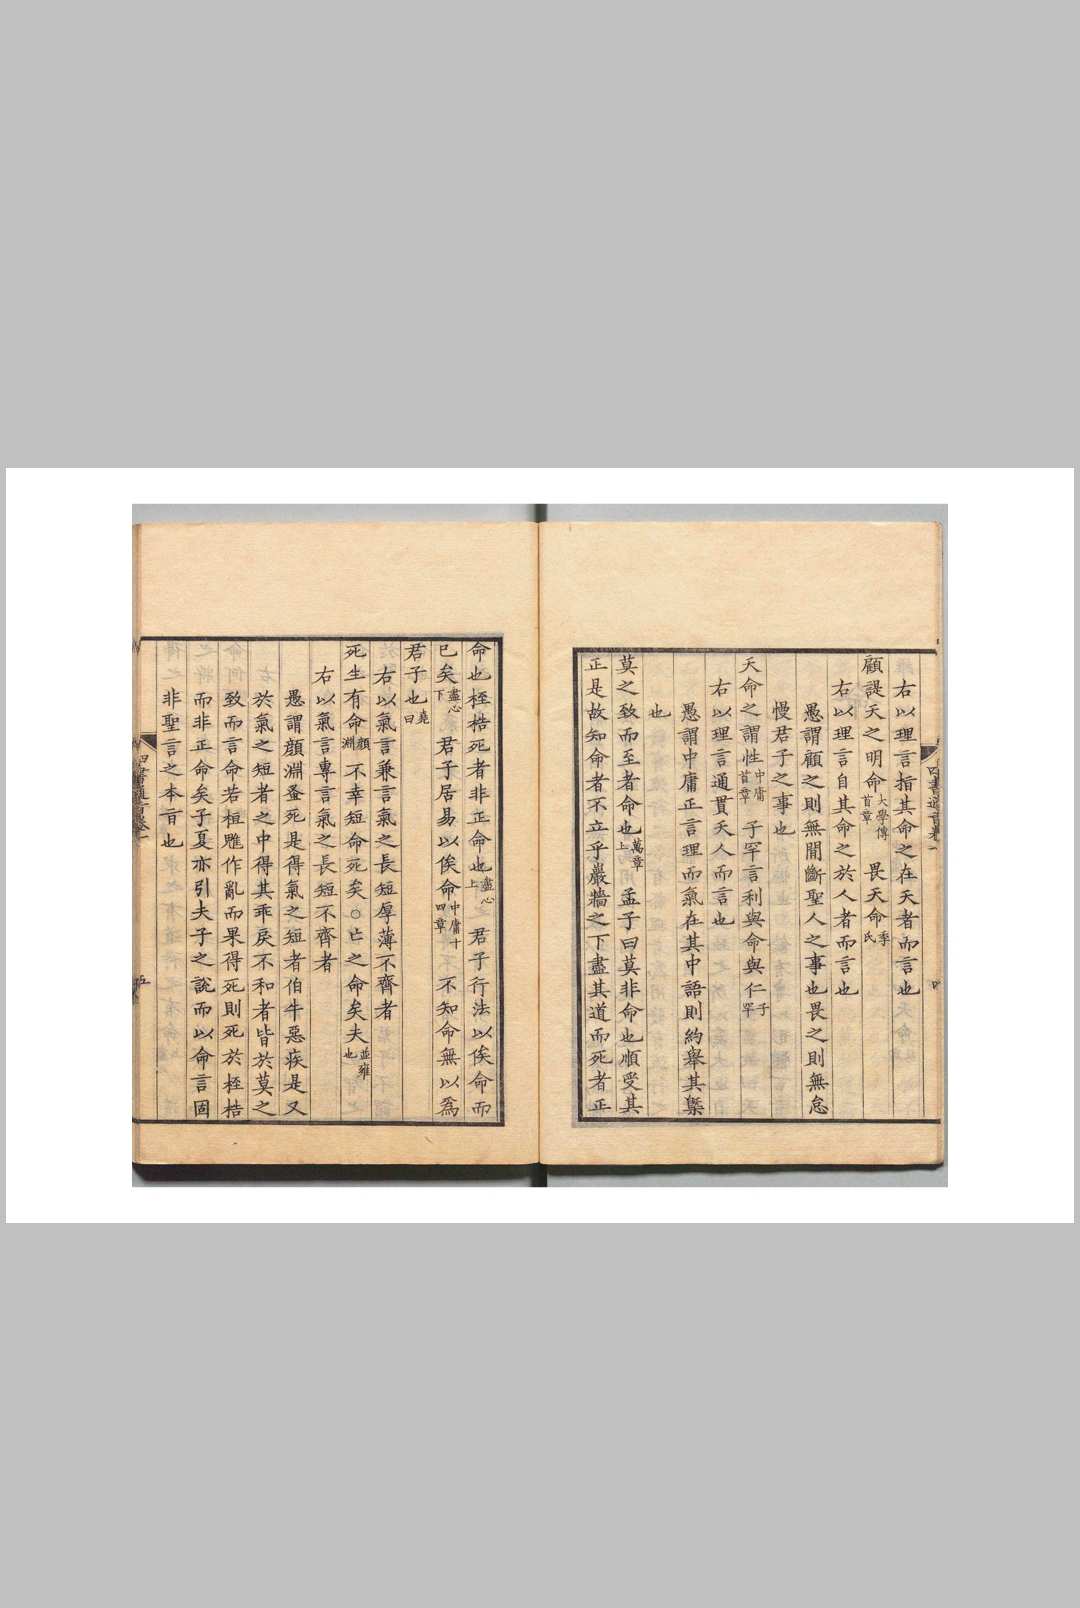 右以理言指其命之在天者而言也
顧諟天之明命大學傳首章 畏天命季氏
右以理言自其命之於人者而言也
愚謂顧之則無間斷聖人之事也畏之則無怠
慢君子之事也
天命之謂性中庸首章 子罕言利與命與仁子罕
右以理言通貫天人而言也
愚謂中庸正言理而氣在其中語則約舉其槩
也
莫之致而至者命也萬章上 孟子曰莫非命也順受其
正是故知命者不立乎巖牆之下盡其道而死者正
命也桎梏死者非正命也盡心上 君子行法以俟命而
已矣盡心下 君子居易以俟命中庸十四章 不知命無以為
君子也堯曰
右以氣言兼言氣之長短厚薄不齊者
死生有命顏淵 不幸短命死矣○亡之命矣夫並雍也
右以氣言專言氣之長短不齊者
愚謂顏淵蚤死是得氣之短者伯牛惡疾是又
於氣之短者之中得其乖戾不和者皆於莫之
致而言命若桓雕作亂而果得死則死於桎梏
而非正命矣子夏亦引夫子之說而以命言固
非聖言之本旨也
四書通旨卷一
五